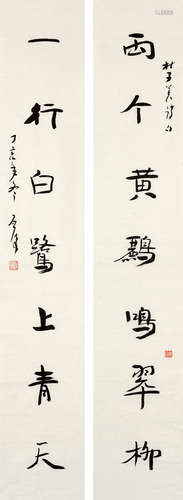 杜子美诗句
两个黄鹂鸣翠柳
一行白鹭上青天
丁亥年冬